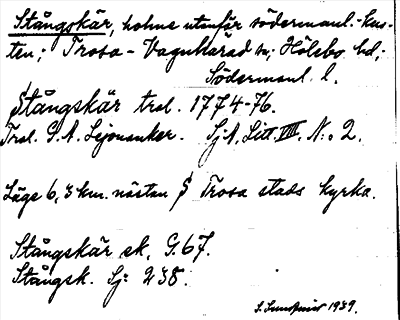 Stångskär, holme utanför södermanl. kus-
ten; Trosa-Vagnhärad sn; Hölebo hd;
Södermanl. l.
Stångskär trol. 1774-76.
Trol. G. A. Lejonanker. Sj.A. Litt. VIII. N:o 2.
Läge 6,3 km. nästan S Trosa stads kyrka.
Stångskär ek. G. 67.
Stångsk. Sj: 238.
S. 1939.